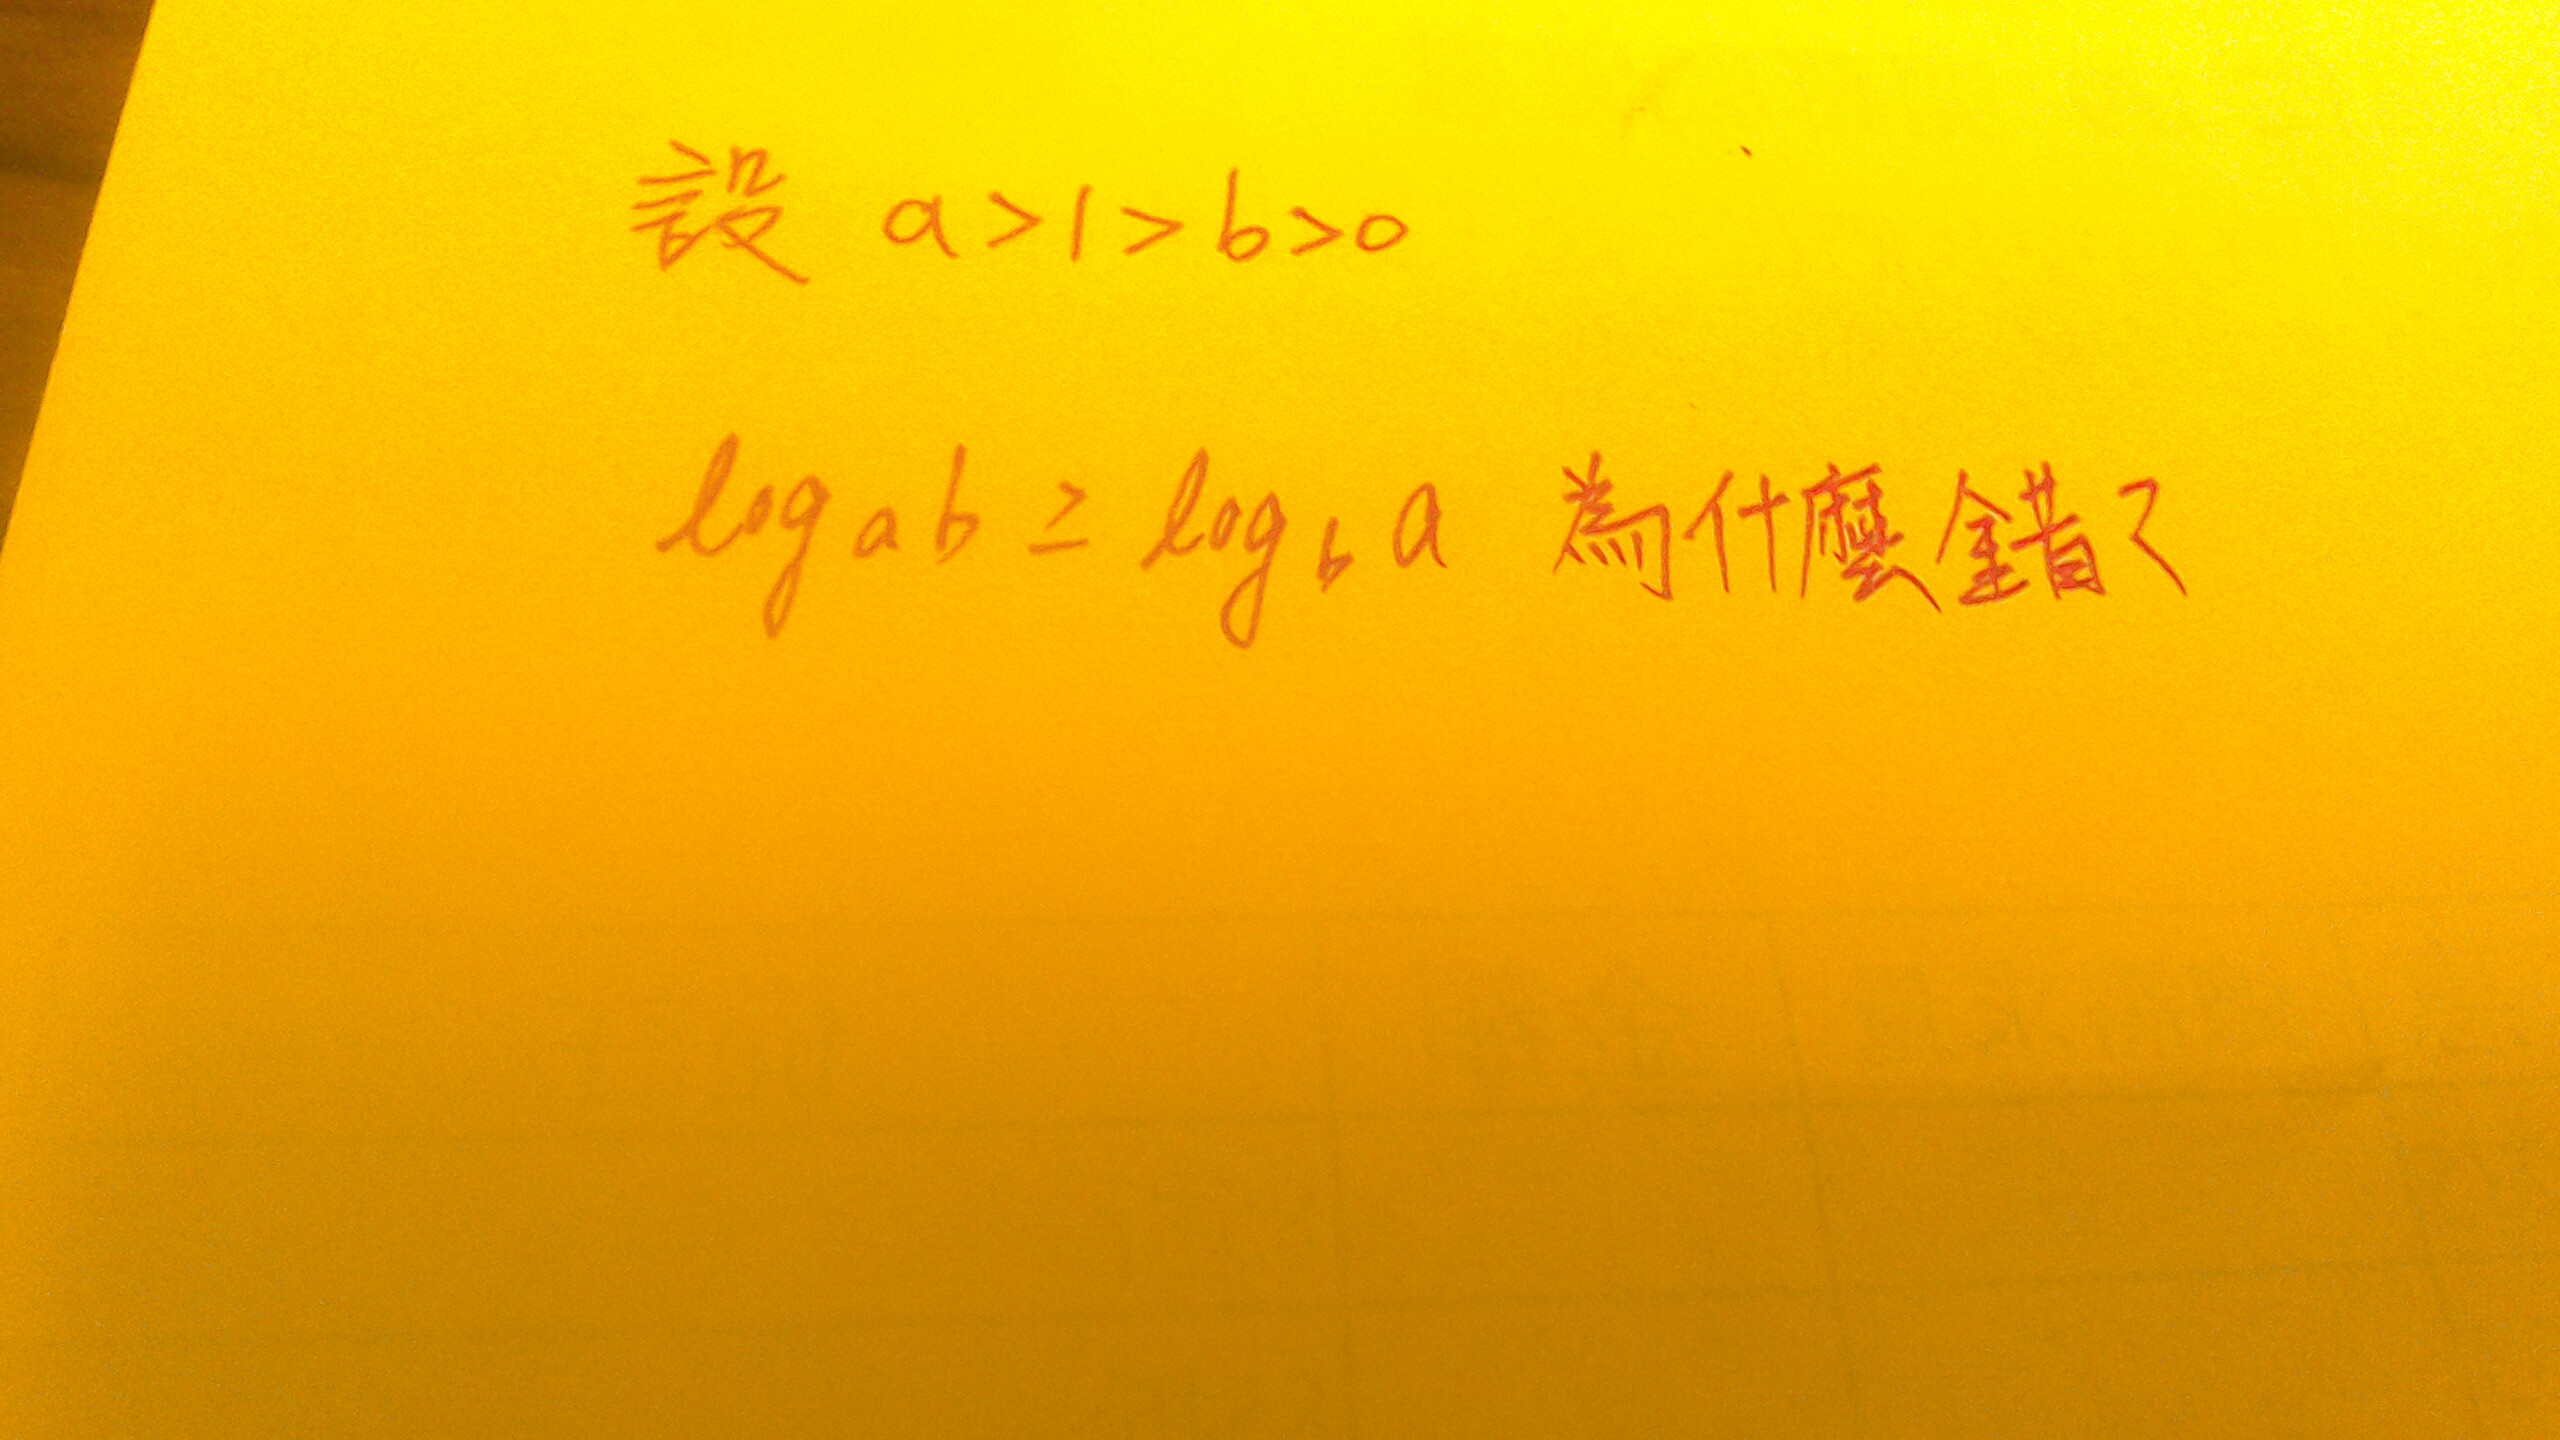 設 a>1>b>0
log_a b ≥ log_b a 為什麼錯了